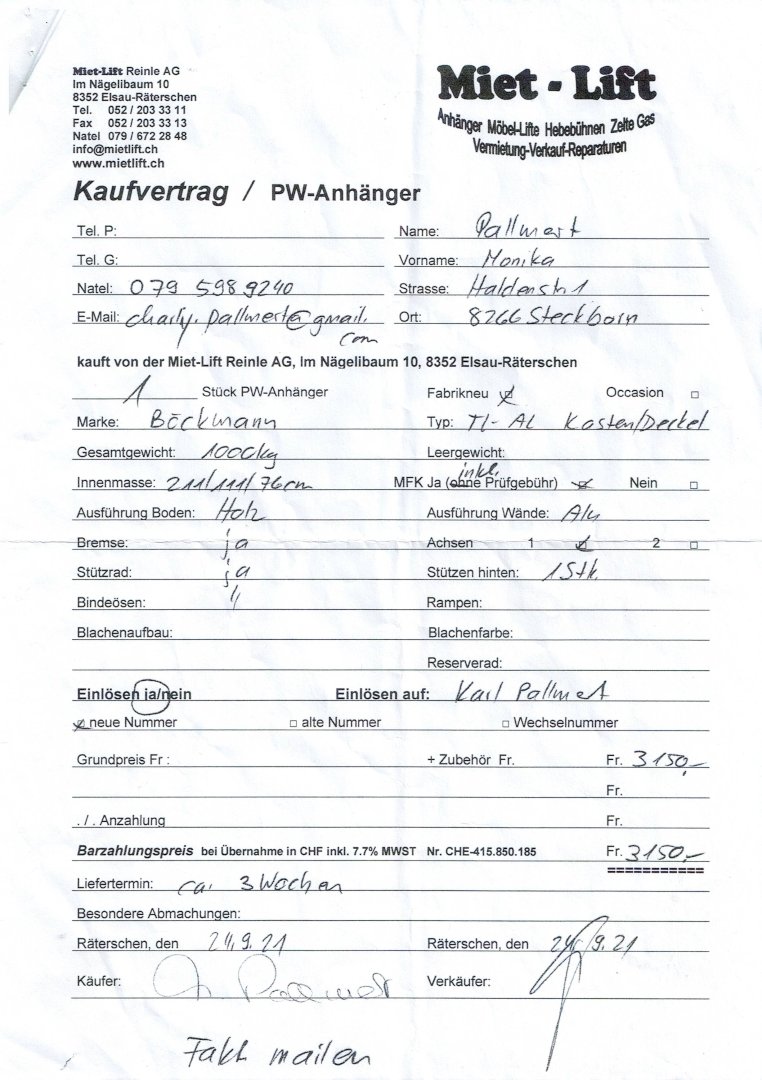 Miet-Lift Reinle AG
Im Nägelibaum 10
8352 Elsau-Räterschen
Tel. 052 / 203 33 11
Fax 052 / 203 33 13
Natel 079 / 672 28 48
info@mietlift.ch
www.mietlift.ch
Miet - Lift
Anhänger Möbel-Lifte Hebebühnen Zelte Gas
Vermietung-Verkauf-Reparaturen
Kaufvertrag / PW-Anhänger
Tel. P: Name: Pallmert
Tel. G: Vorname: Monika
Natel: 079 598 9240 Strasse: Haldenstr 1
E-Mail: charly.pallmert@gmail. Ort: 8266 Steckborn
com
kauft von der Miet-Lift Reinle AG, Im Nägelibaum 10, 8352 Elsau-Räterschen
1 Stück PW-Anhänger Fabrikneu ☑ Occasion □
Marke: Böckmann Typ: Tl-AL Kasten/Deckel
Gesamtgewicht: 1000kg Leergewicht:
inkl.
Innenmasse: 211/111/76cm MFK Ja (ohne Prüfgebühr) ☑ Nein □
Ausführung Boden: Holz Ausführung Wände: Alu
Bremse: ja Achsen 1 ☑ 2 □
Stützrad: ja Stützen hinten: 1 Stk.
Bindeösen: 4 Rampen:
Blachenaufbau: Blachenfarbe:
Reserverad:
Einlösen ja/nein Einlösen auf: Karl Pallmert
☑ neue Nummer □ alte Nummer □ Wechselnummer
Grundpreis Fr : + Zubehör Fr. Fr. 3150.-
Fr.
. / . Anzahlung Fr.
Barzahlungspreis bei Übernahme in CHF inkl. 7.7% MWST Nr. CHE-415.850.185 Fr. 3150.-
===========
Liefertermin: ca. 3 Wochen
Besondere Abmachungen:
Räterschen, den 24.9.21 Räterschen, den 24.9.21
Käufer: M. Pallmert Verkäufer:
Fakt mailen